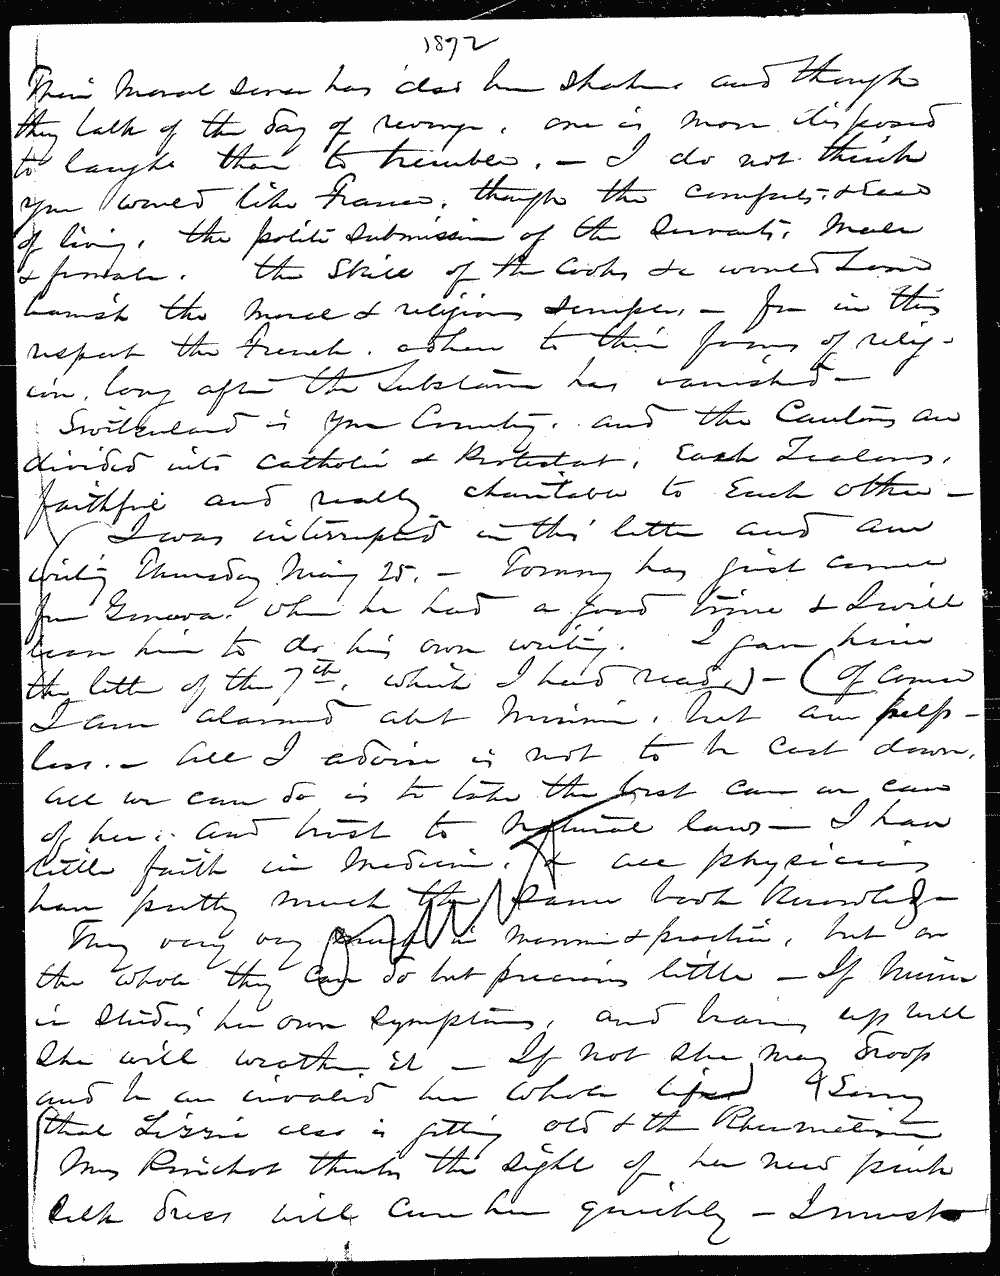 1872
Their moral sense has also been shaken and though
they talk of the day of revenge, one is more disposed
to laugh than to tremble. — I do not think
you would like France, though the comforts
of living, the polite submission of the servants, male
& female. the skill of the cooks &c would soon
banish the moral & religious scruples, — for in this
respect the French. adhere to their forms of relig-
ion, long after the substance has vanished —
Switzerland is your Country. and the Cantons are
divided into Catholic & Protestant, Each Zealous,
faithful and really charitable to Each other —
I was interrupted in this letter and am
writing Thursday May 25. — Tommy has just come
from Geneva. where he had a good time & I will
leave him to do his own writing. I gave him
the letter of the 7th, which I had read — (Of course
I am alarmed abt Minnie, but am help-
less. — All I advise is not to be cast down,
all we can do is to take the best care we can
of her. and trust to natural laws — I have
little faith in Medicine, & all physicians
have pretty much the same book Knowledge
They vary very much in manner & practice, but on
the whole they can do but precious little — If Minnie
is studying her own symptoms, and bears up well
She will weather it — If not she may droop
and be an invalid her whole life) (Sorry
that Lizzie also is getting old & the Rheumatism
Mrs Pinchot thinks the sight of her new pink
silk dress will cure her quickly — I must